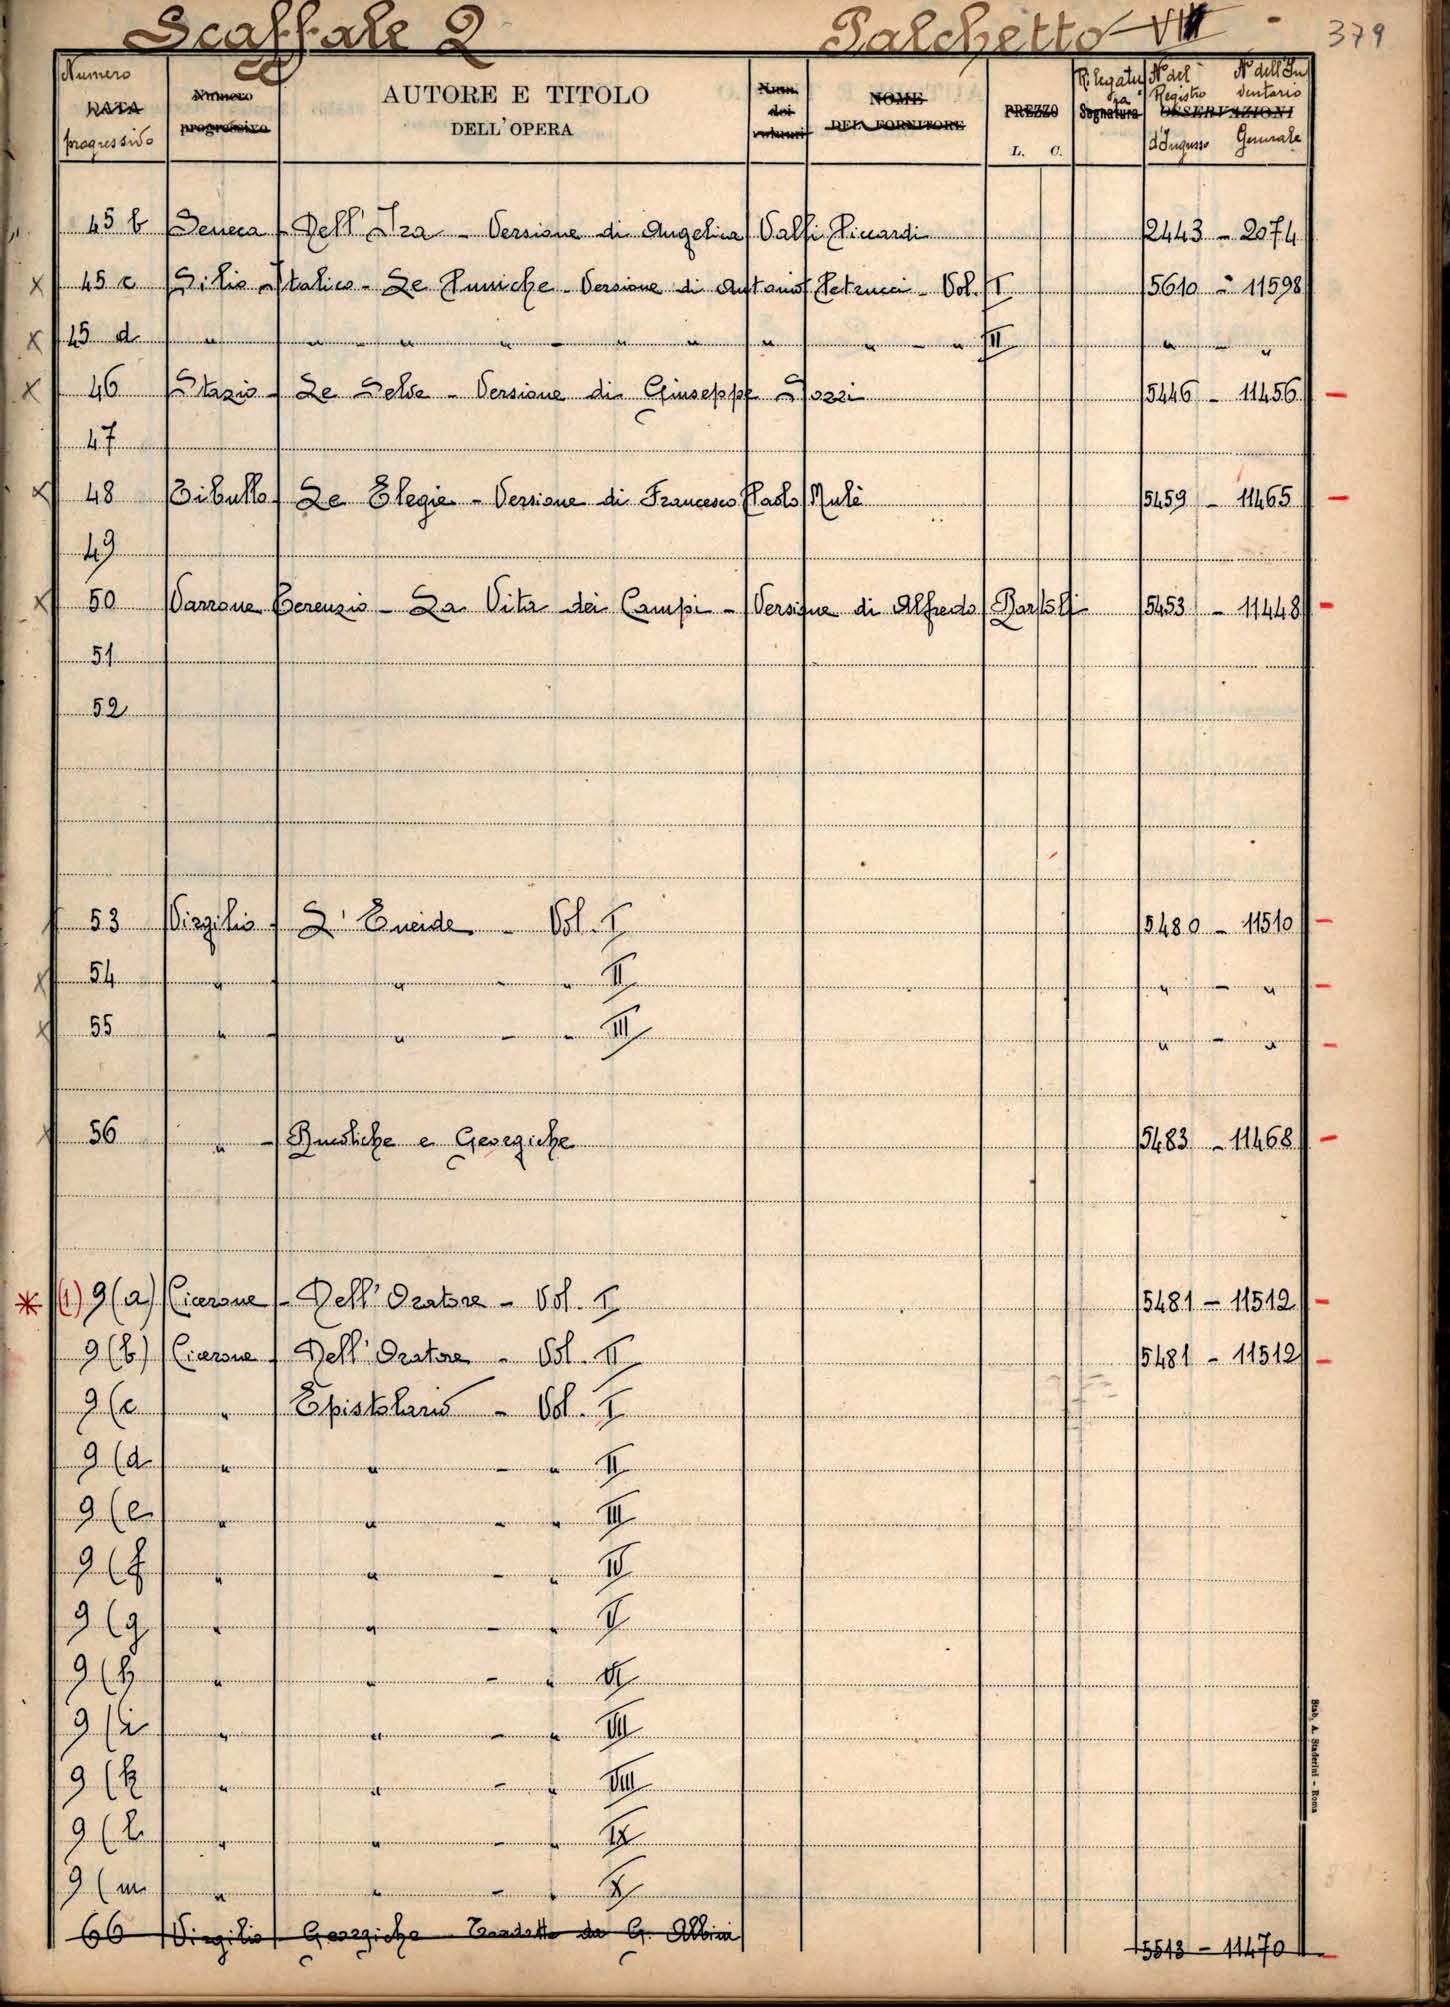 Scaffale 2 Palchetto VIII 379
Numero DATA progressivo
Numero progressivo
AUTORE E TITOLO
DELL'OPERA
Num. dei volumi
NOME DEL FORNITORE
PREZZO
L. C.
Rilegatura Segnatura
N° del Registro d'Ingresso N° dell'Inventario Generale
OSSERVAZIONI
45 b Seneca - Dell'Ira - Versione di Angelica Valli Piccardi 2443 - 2074
x 45 c Silio Italico - Le Puniche - Versione di Antonio Petrucci - Vol. I 5610 - 11598
x 45 d " " - " " - " " " " - " II " - "
x 46 Stazio - Le Selve - Versione di Giuseppe Sozzi 5446 - 11456 -
47
x 48 Tibullo - Le Elegie - Versione di Francesco Paolo Mulè 5459 - 11465 -
49
x 50 Varrone Terenzio - La Vita dei Campi - Versione di Alfredo Bartoli 5453 - 11448 -
51
52
53 Virgilio - L'Eneide - Vol. I 5480 - 11510 -
x 54 " " - " II " - " -
x 55 " - " - " III " - " -
x 56 " - Bucoliche e Georgiche 5483 - 11468 -
* (1) 9(a) Cicerone - Dell'Oratore - Vol. I 5481 - 11512 -
9(b) Cicerone - Dell'Oratore - Vol. II 5481 - 11512 -
9(c " Epistolario - Vol. I
9(d " " - " II
9(e " " - " III
9(f " " - " IV
9(g " " - " V
9(h " " - " VI
9(i " " - " VII
9(k " " - " VIII
9(l " " - " IX
9(m " " - " X
66 Virgilio - Georgiche Tradotte da G. Albini 5513 - 11470 -
Stab. A. Staderini - Roma